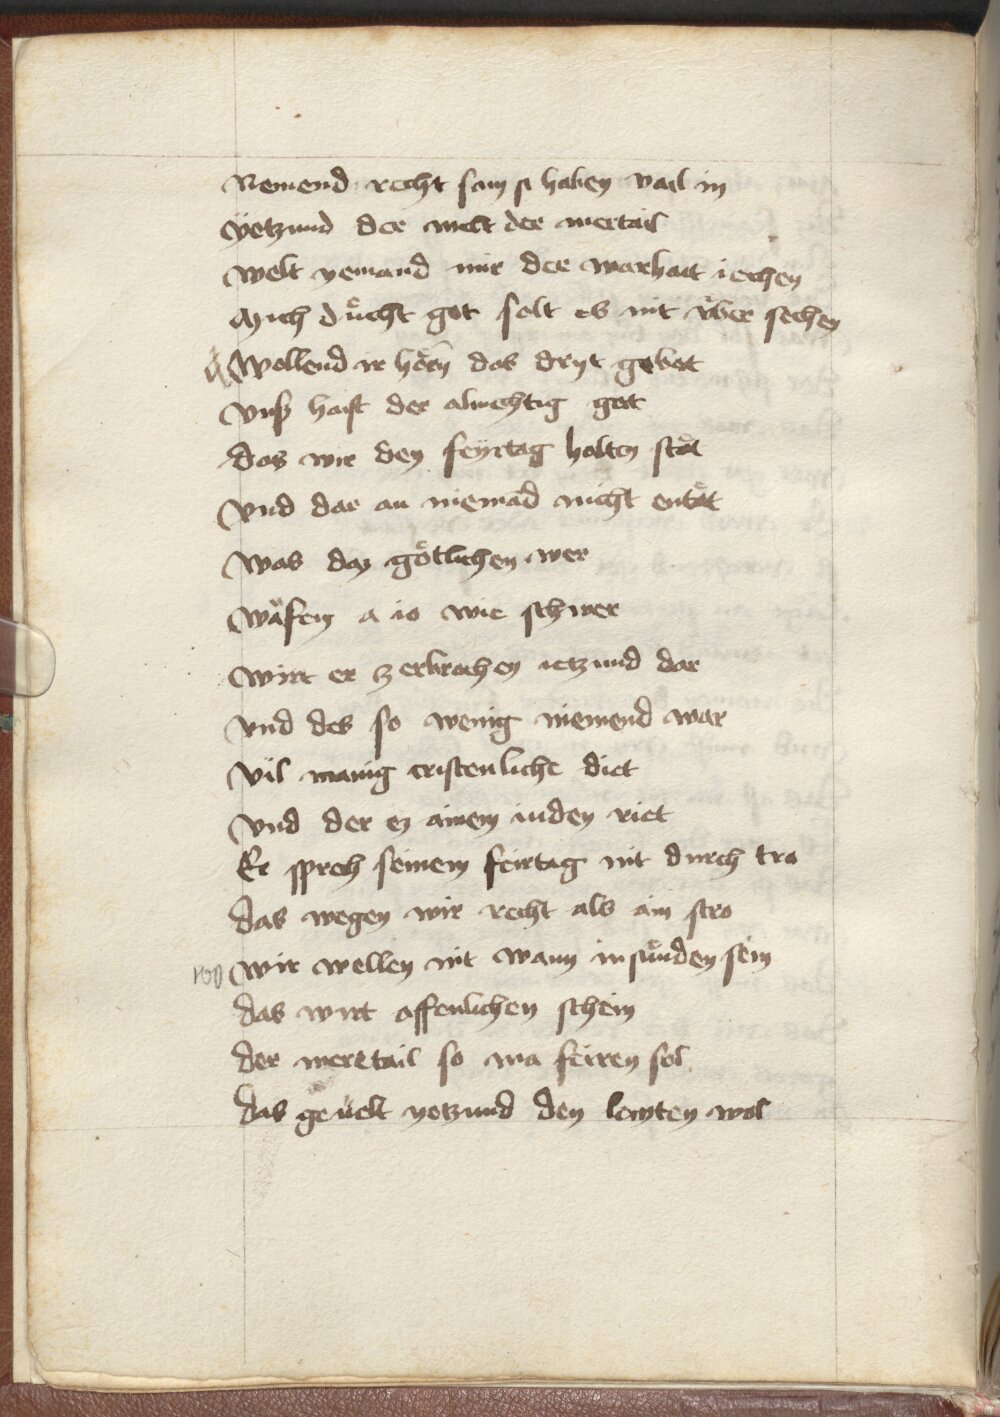 Nemend recht sam si haben vail in
yetzund der welt der mertail
Welt yemand mir der warhait iechen
Mich dücht got solt es nit vͤber sechen
Wollend ir hörn das dryt gebot
Vnß haist der almechtig got
das wir den feyrtag halten stät
Vnd dar an niemād nicht entät
Was daz götlichen wer
Wäfen a io wie schwer
Wirt er zerbrochen ietzund dar
Vnd des so wenig niemend war
Vil manig cristenliche diet
Vnd der ez ainem iuden riet
Er sprech seinem feirtag nit durch tro
das wegen wir recht als ain stro
100 Wir wellen nit wann in sünden sein
das wirt offenlichen schein
der mertail so ma feiren sol
das geuelt yetzund den lewten wol